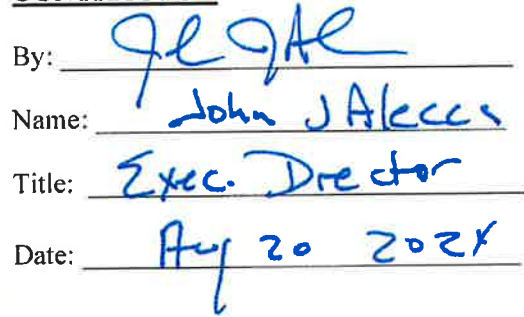 By:
Name: John J Alecca
Title: Exec. Director
Date: Aug 20 2024